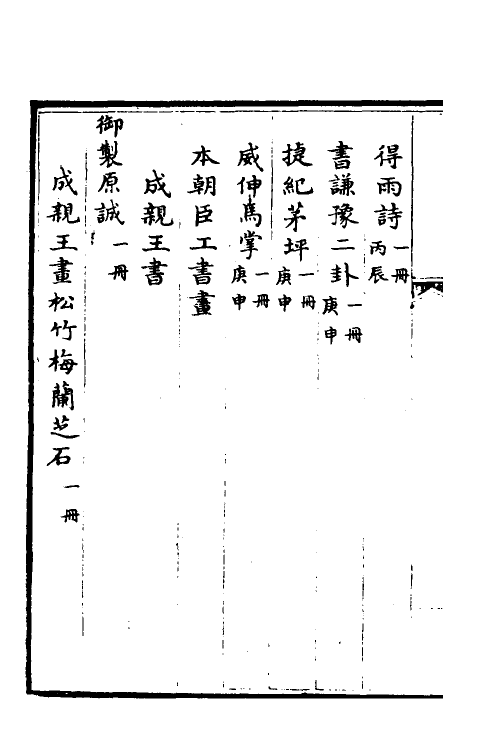 得雨詩一冊丙辰
書謙豫二卦一冊庚申
捷紀茅坪一冊庚申
威伸馬掌一冊庚申
本朝臣工書畫
成親王書
御製原誠一冊
成親王畫松竹梅蘭芝石一冊